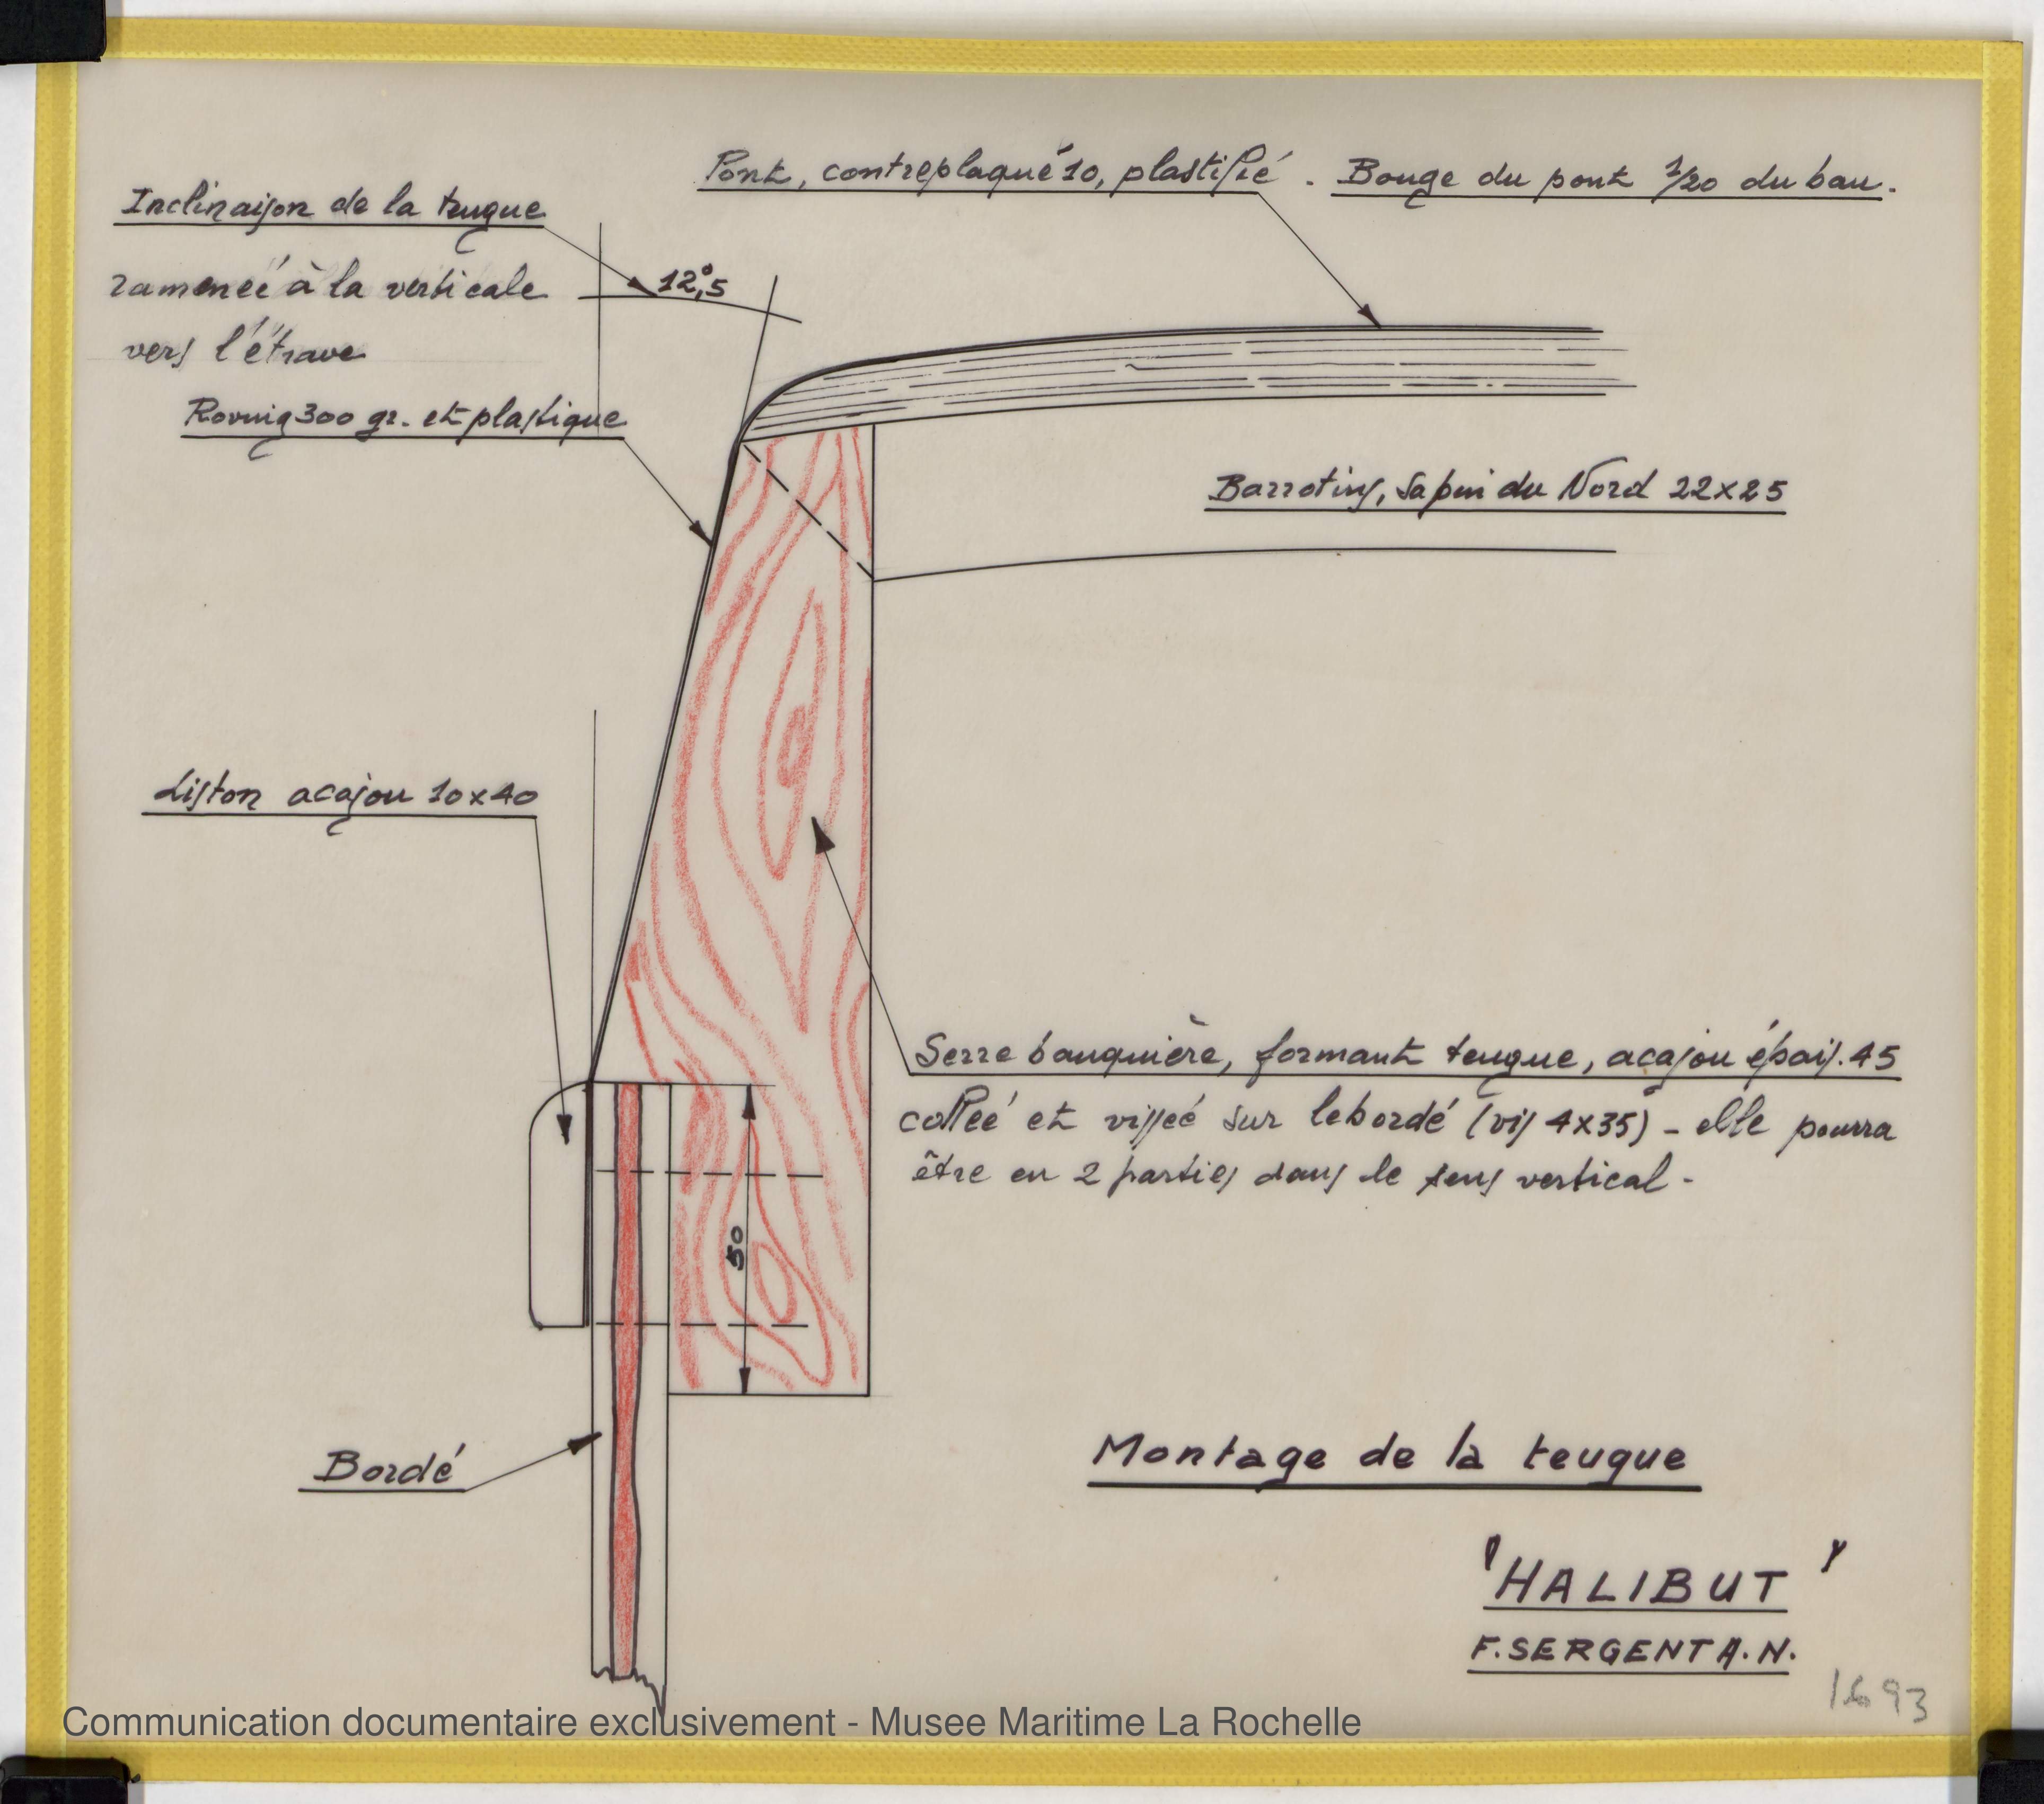 Pont, contreplaqué 10, plastifié. Bouge du pont 1/20 du bau.
Inclinaison de la teugue
ramenée à la verticale
vers l'étrave
12°,5
Roving 300 gr. et plastique
Barrotins, Sapin du Nord 22x25
Liston acajou 10x40
Serre bauquière, formant teugue, acajou épais. 45
collée et vissée sur le bordé (vis 4x35) - elle pourra
être en 2 parties dans le sens vertical -
50
Bordé
Montage de la teugue
"HALIBUT"
F. SERGENT A.N.
1693
Communication documentaire exclusivement - Musee Maritime La Rochelle